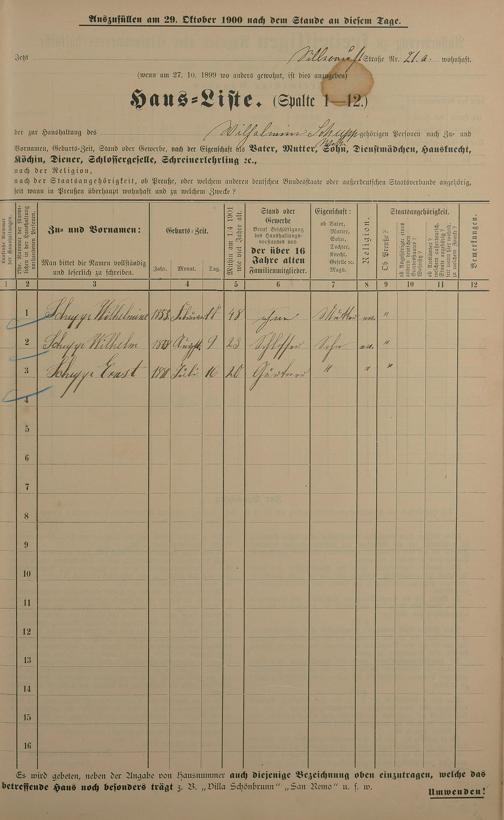 Auszufüllen am 29. Oktober 1900 nach dem Stande an diesem Tage.
Jetzt Straße Nr. 21.a. wohnhaft.
(wenn am 27. 10. 1899 wo anders gewohnt, ist dies anzugeben)
Haus-Liste. (Spalte 1—12.)
der zur Haushaltung des Wilhelmine gehörigen Personen nach Zu- und
Vornamen, Geburts-Zeit, Stand oder Gewerbe, nach der Eigenschaft als Vater, Mutter, Sohn, Dienstmädchen, Hausknecht,
Köchin, Diener, Schlossergeselle, Schreinerlehrling ꝛc.,
nach der Religion,
nach der Staatsangehörigkeit, ob Preuße, oder welchem anderen deutschen Bundesstaate oder außerdeutschen Staatsverbande angehörig,
seit wann in Preußen überhaupt wohnhaft und zu welchem Zwecke?
Zu- und Vornamen:
Man bittet die Namen vollständig
und leserlich zu schreiben.
Geburts-Zeit.
Jahr. Monat. Tag.
Within am 1.4 1901
wie viel Jahre alt.
Stand oder
Gewerbe
der über 16
Jahre alten
Familienmitglieder.
Eigenschaft:
ob Vater,
Mutter,
Sohn,
Tochter,
Knecht,
Geselle ꝛc.
Magd.
Religion.
Staatsangehörigkeit.
Ob Preuße?
Bemerkungen.
1 2 3 4 5 6 7 8 9 10 11 12
1 Wilhelmine 1853 48 ohne Mutter ev. "
2 Wilhelm 9 23 Schlosser Sohn ev. "
3 Ernst Juli 16 20 Gärtner " " "
4
5
6
7
8
9
10
11
12
13
14
15
16
Es wird gebeten, neben der Angabe von Hausnummer auch diejenige Bezeichnung oben einzutragen, welche das
betreffende Haus noch besonders trägt z. B. „Villa Schönbrunn" „San Remo" u. s. w.
Umwenden!